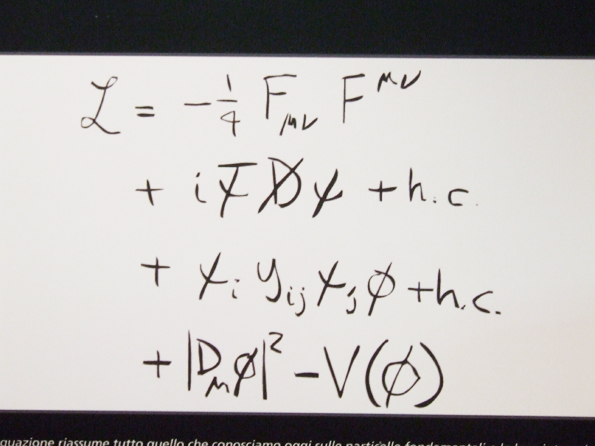 ℒ = -1/4 F_μν F^μν
+ i ψ̄ D̸ ψ + h.c.
+ ψ_i y_ij ψ_j φ + h.c.
+ |D_μ φ|² - V(φ)
quazione riassume tutto quello che conosciamo oggi sulle particelle fondamentali e